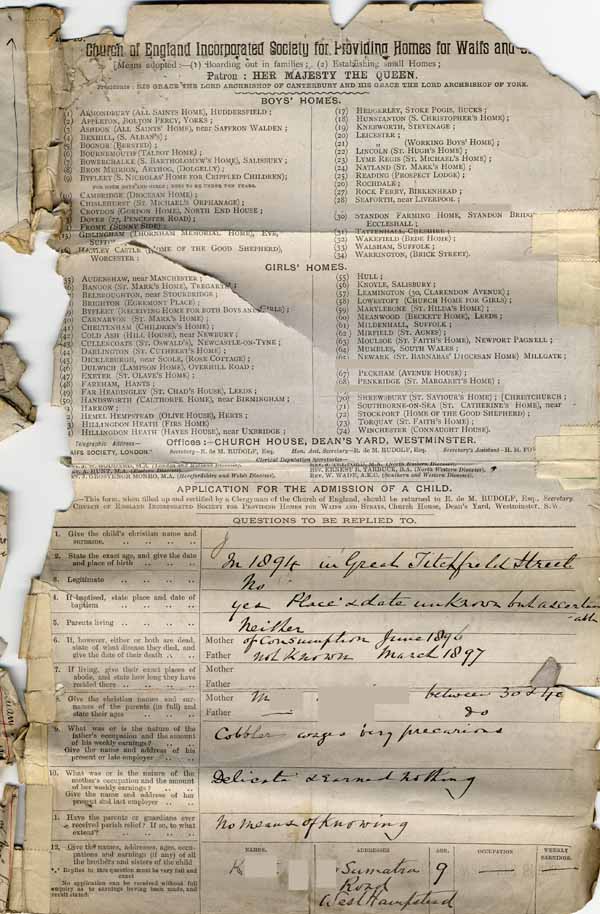 Church of England Incorporated Society for Providing Homes for Waifs and
[Means adopted:—(1) Boarding out in families; (2) Establishing small Homes;
Patron: HER MAJESTY THE QUEEN.
Presidents: HIS GRACE THE LORD ARCHBISHOP OF CANTERBURY AND HIS GRACE THE LORD ARCHBISHOP OF YORK.
BOYS' HOMES.
ALMONDBURY (ALL SAINTS HOME), HUDDERSFIELD;
2) APPLETON, BOLTON PERCY, YORKS;
3) ASHDON (ALL SAINTS' HOME), near SAFFRON WALDEN;
4) BEXHILL, (S. ALBAN'S);
5) BOGNOR (BERSTED);
6) BOURNEMOUTH (TALBOT HOME);
7) BOWERCHALKE (S. BARTHOLOMEW'S HOME), SALISBURY;
8) BRON MEIRION, ARTHOG, (DOLGELLY);
BYFLEET (S. NICHOLAS' HOME FOR CRIPPLED CHILDREN);
FOR BOTH BOYS AND GIRLS;
9) CAMBRIDGE (DIOCESAN HOME);
CHISLEHURST (ST. MICHAEL'S ORPHANAGE);
CROYDON (GORDON HOME), NORTH END HOUSE;
DOVER (77, PENCESTER ROAD);
FROME (SUNNY SIDE);
GISLINGHAM (THORNHAM MEMORIAL HOME), EYE,
SUFFO
HANLEY CASTLE (HOME OF THE GOOD SHEPHERD),
WORCESTER;
(17) HEDGERLEY, STOKE POGIS, BUCKS;
(18) HUNSTANTON (S. CHRISTOPHER'S HOME)
(19) KNEBWORTH, STEVENAGE;
(20) LEICESTER;
(21) (WORKING BOYS' HOME)
(22) LINCOLN (ST. HUGH'S HOME);
(23) LYME REGIS (ST. MICHAEL'S HOME);
(24) NATLAND (ST. MARK'S HOME);
(25) READING (PROSPECT LODGE);
(26) ROCHDALE;
(27) ROCK FERRY, BIRKENHEAD;
(28) SEAFORTH, near LIVERPOOL;
(30) STANDON FARMING HOME, STANDON BRIDGE
ECCLESHALL;
(31) TATTENHALL, CHESHIRE;
(32) WAKEFIELD (BEDE HOME);
(33) WALSHAM, SUFFOLK;
(34) WARRINGTON, (BRICK STREET).
GIRLS' HOMES.
35) AUDENSHAW, near MANCHESTER;
36) BANGOR (ST. MARK'S HOME), TREGARTH;
BELBROUGHTON, near STOURBRIDGE;
BRIGHTON (EGREMONT PLACE);
BYFLEET (RECEIVING HOME FOR BOTH BOYS AND GIRLS);
40) CARNARVON (ST. MARK'S HOME);
41) CHELTENHAM (CHILDREN'S HOME);
COLD ASH (HILL HOUSE), near NEWBURY;
CULLERCOATS (ST. OSWALD'S), NEWCASTLE-ON-TYNE;
44) DARLINGTON (ST. CUTHBERT'S HOME)
45) DICKLEBURGH, near SCOLE, (ROSE COTTAGE);
46) DULWICH (LAMPSON HOME), OVERHILL ROAD;
47) EXETER (ST. OLAVE'S HOME);
48) FAREHAM, HANTS;
FAR HEADINGLEY (ST. CHAD'S HOUSE), LEEDS;
HANDSWORTH (CALTHORPE HOME), near BIRMINGHAM;
HARROW;
HEMEL HEMPSTEAD (OLIVE HOUSE), HERTS;
HILLINGDON HEATH (FIRS HOME);
HILLINGDON HEATH (HAYES HOME), near UXBRIDGE;
(55) HULL;
(56) KNOYLE, SALISBURY;
(57) LEAMINGTON (30, CLARENDON AVENUE);
(58) LOWESTOFT (CHURCH HOME FOR GIRLS);
(59) MARYLEBONE (ST. HILDA'S HOME);
(60) MEANWOOD (BECKETT HOME), LEEDS;
(61) MILDENHALL, SUFFOLK;
(62) MIRFIELD (ST. AGNES);
(63) MOULSOE (ST. FAITH'S HOME), NEWPORT PAGNELL;
(64) MUMBLES, SOUTH WALES;
NEWARK (ST. BARNABAS' DIOCESAN HOME) MILLGATE
(67) PECKHAM (AVENUE HOUSE);
(68) PENKRIDGE (ST. MARGARET'S HOME);
(70) SHREWSBURY (ST. SAVIOUR'S HOME); [CHRISTCHURCH;
(71) SOUTHBORNE-ON-SEA (ST. CATHERINE'S HOME), near
(72) STOCKPORT (HOME OF THE GOOD SHEPHERD);
(73) TORQUAY (ST. FAITH'S HOME);
(74) WINCHESTER (CONNAUGHT HOUSE).
Telegraphic Address—
Offices:—CHURCH HOUSE, DEAN'S YARD, WESTMINSTER.
AIFS SOCIETY, LONDON."
Secretary—E. de M. RUDOLF, Esq.
Hon. Asst. Secretary—R. de M. RUDOLF, Esq.
Secretary's Assistant—
Clerical Deputation Secretaries—
APPLICATION FOR THE ADMISSION OF A CHILD.
This form, when filled up and certified by a Clergyman of the Church of England, should be returned to E. de M. RUDOLF, Esq. Secretary.
CHURCH OF ENGLAND INCORPORATED SOCIETY FOR PROVIDING HOMES FOR WAIFS AND STRAYS, Church House, Dean's Yard, Westminster, S.W.
QUESTIONS TO BE REPLIED TO.
1. Give the child's christian name and
surname.
J
2. State the exact age, and give the date
and place of birth
In 1894 in Great Titchfield Street
3. Legitimate
No
4. If baptised, state place and date of
baptism
yes Place & date unknown but ascertain
-able
5. Parents living
Neither
6. If, however, either or both are dead,
state of what disease they died, and
give the date of their death
Mother of Consumption June 1896
Father not Known March 1897
7. If living, give their exact places of
abode, and state how long they have
resided there
Mother
Father
8. Give the christian names and sur-
names of the parents (in full) and
state their ages
Mother M between 30 & 40
Father — do
9. What was or is the nature of the
father's occupation and the amount
of his weekly earnings?
Give the name and address of his
present or late employer
Cobbler wages very precarious
10. What was or is the nature of the
mother's occupation and the amount
of her weekly earnings?
Give the name and address of her
present and last employer
Delicate & earned nothing
1. Have the parents or guardians ever
received parish relief? If so, to what
extent?
No means of Knowing
12. Give the names, addresses, ages, occu-
pations and earnings (if any) of all
the brothers and sisters of the child
Replies to this question must be very full and
exact
No application can be received without full
enquiry as to earnings having been made, and
result stated
NAMES. ADDRESSES AGE. OCCUPATION WEEKLY
EARNINGS.
K Sumatra 9 — —
Road
West Hampstead